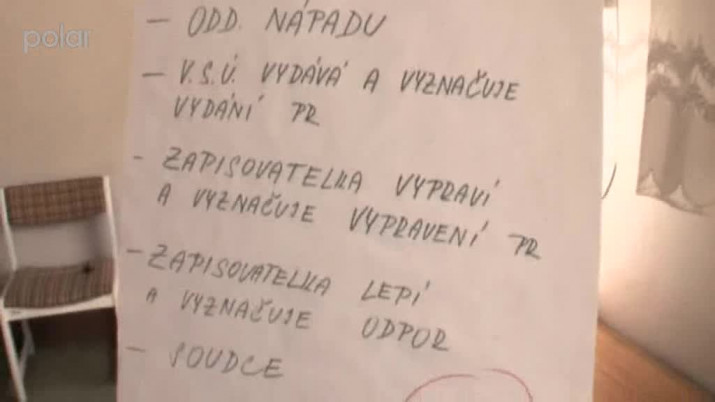 polar
– ODD. NÁPADU
– V.S.Ú. VYDÁVÁ A VYZNAČUJE
VYDÁNÍ PR
- ZAPISOVATELKA VYPRAVÍ
A VYZNAČUJE VYPRAVENÍ PR
– ZAPISOVATELKA LEPÍ
A VYZNAČUJE ODPOR
– SOUDCE